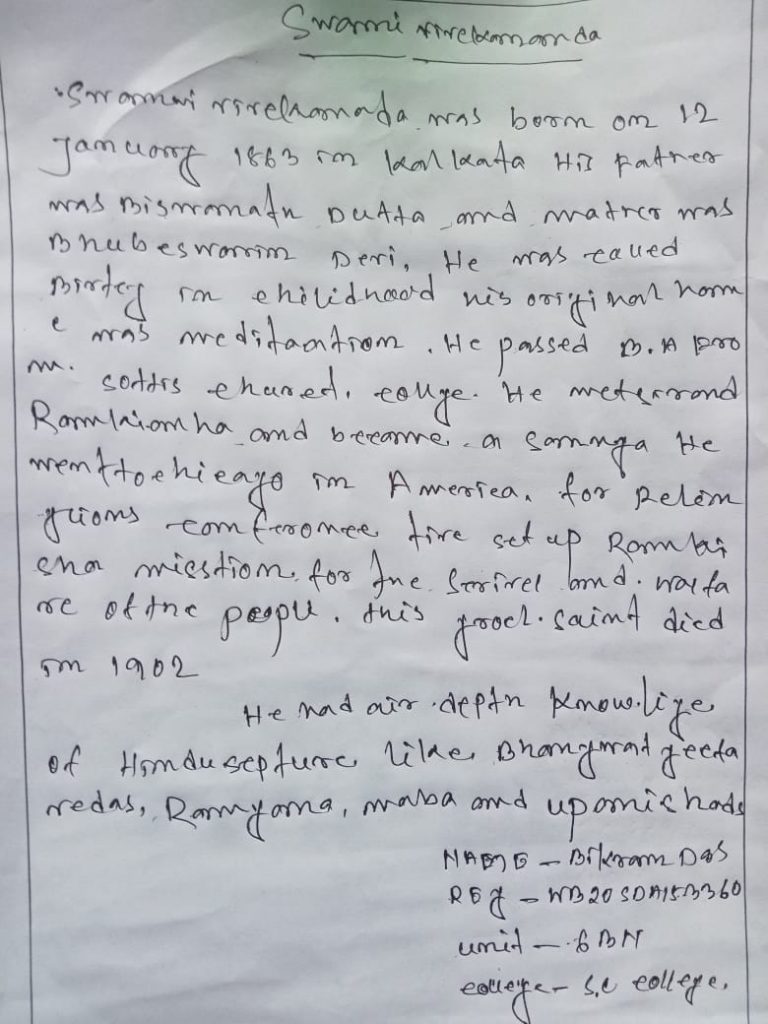 Swami vivekananda
Swamwi vivekanada was born on 12
January 1863 in kalkata His father
was Biswanath Dutta and mather was
Bhubeswarim Devi, He was called
Birley in chilidhood his original nam
e was meditaation. He passed B.A fro
m. sottis chured. collge. He met
Ramkiamha and became a He
went to chicago in America, for Relem
guions conference five set up Ramkri
shna misstion, for the and. walfa
re of the peopl. this groet. saint died
in 1902
He had air depth knowlige
of Hindu septure like, Bhangwat geeta
vedas, Ramyana, maba and upanichads
NAME - Bikram Das
REg - WB20SDA153360
unit - 6BN
college - S.C college.